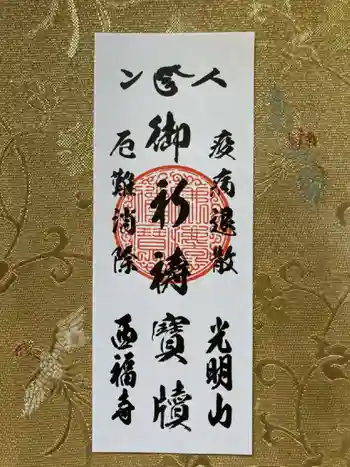 疫病退散
光明山
御祈祷寶牘
厄難消除
西福寺